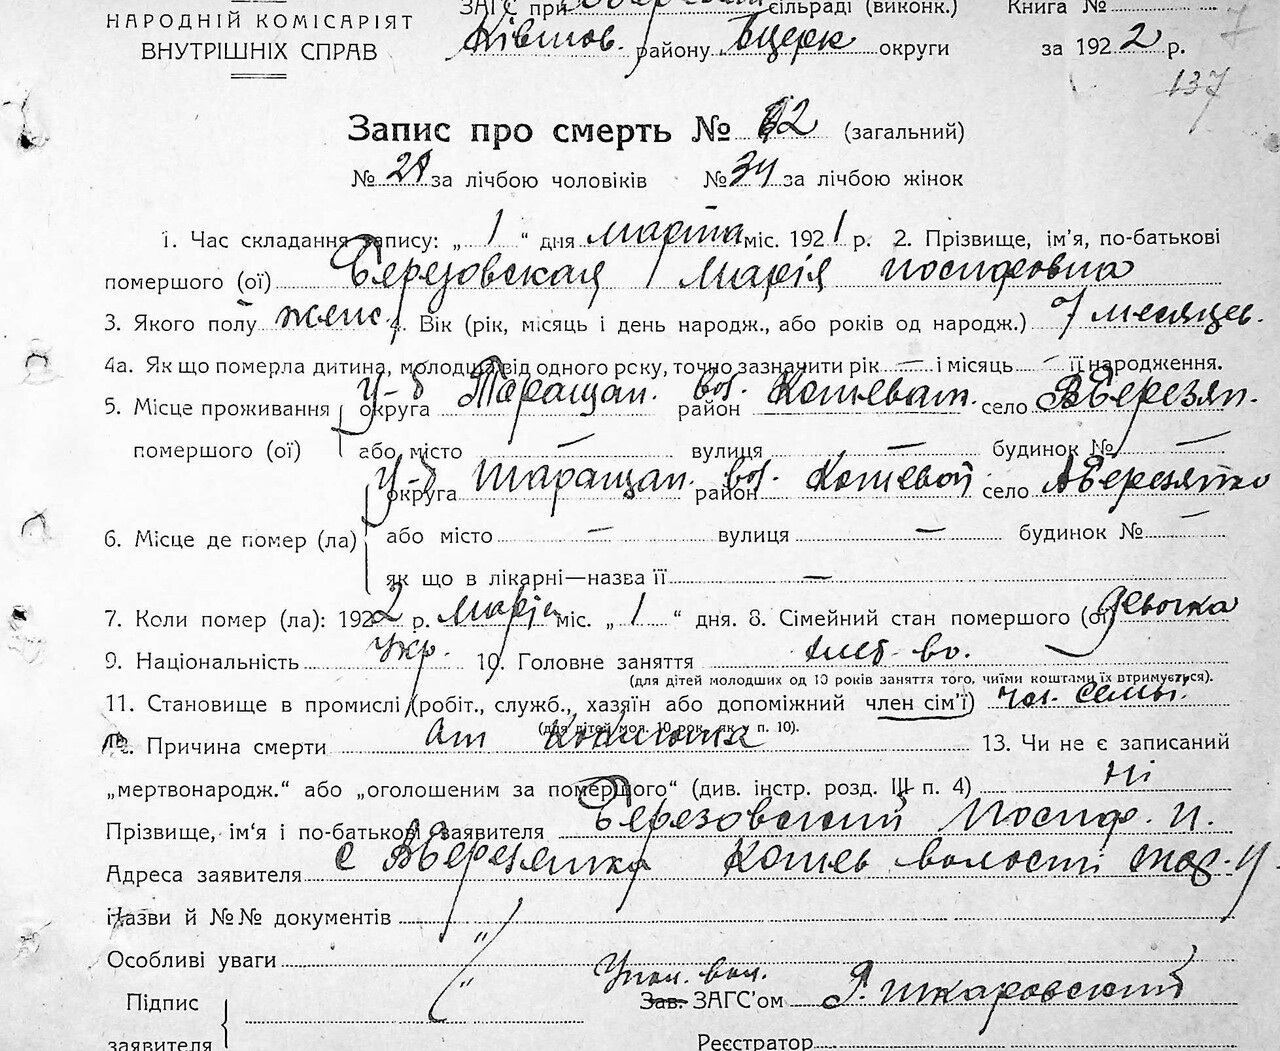 НАРОДНІЙ КОМІСАРІЯТ ЗАГС при сільраді (виконк.) Книга №
ВНУТРІШНІХ СПРАВ району Бцерк округи за 1922 р.
137
Запис про смерть № 62 (загальний)
№ 28 за лічбою чоловіків № 34 за лічбою жінок
1. Час складання запису: „ 1 “ дня марта міс. 1921 р. 2. Прізвище, ім'я, по-батькові
помершого (ої) Березовская Марія иосифовна
3. Якого полу женс 4. Вік (рік, місяць і день народж., або років од народж.) 7 месяцев.
4а. Як що померла дитина, молодша від одного року, точно зазначити рік — і місяць — її народження.
5. Місце проживання округа у-д Таращан. район вол. Кошеват. село
помершого (ої) або місто — вулиця — будинок № —
округа у-д Таращан. район вол. Кошевой село
6. Місце де помер (ла) або місто — вулиця — будинок № —
як що в лікарні—назва її —
7. Коли помер (ла): 1922 р. міс. „ 1 “ дня. 8. Сімейний стан помершого (ої) девочка
9. Національність Укр. 10. Головне заняття
(для дітей молодших од 10 років заняття того, чиїми коштами їх втримується).
11. Становище в промислі (робіт., служб., хазяїн або допоміжний член сім'ї) чл. семьи.
(для дітей мол. 10 рок. як у п. 10).
12. Причина смерти От 13. Чи не є записаний
„мертвонародж.“ або „оголошеним за помершого“ (див. інстр. розд. III п. 4) Ні
Прізвище, ім'я і по-батькові заявителя Березовский Иосиф. И.
Адреса заявителя с Кошев волості тар. у
Назви й №№ документів
Особливі уваги
Упол. вол.
Підпис Зав. ЗАГС'ом Шкаровский
заявителя Реєстратор